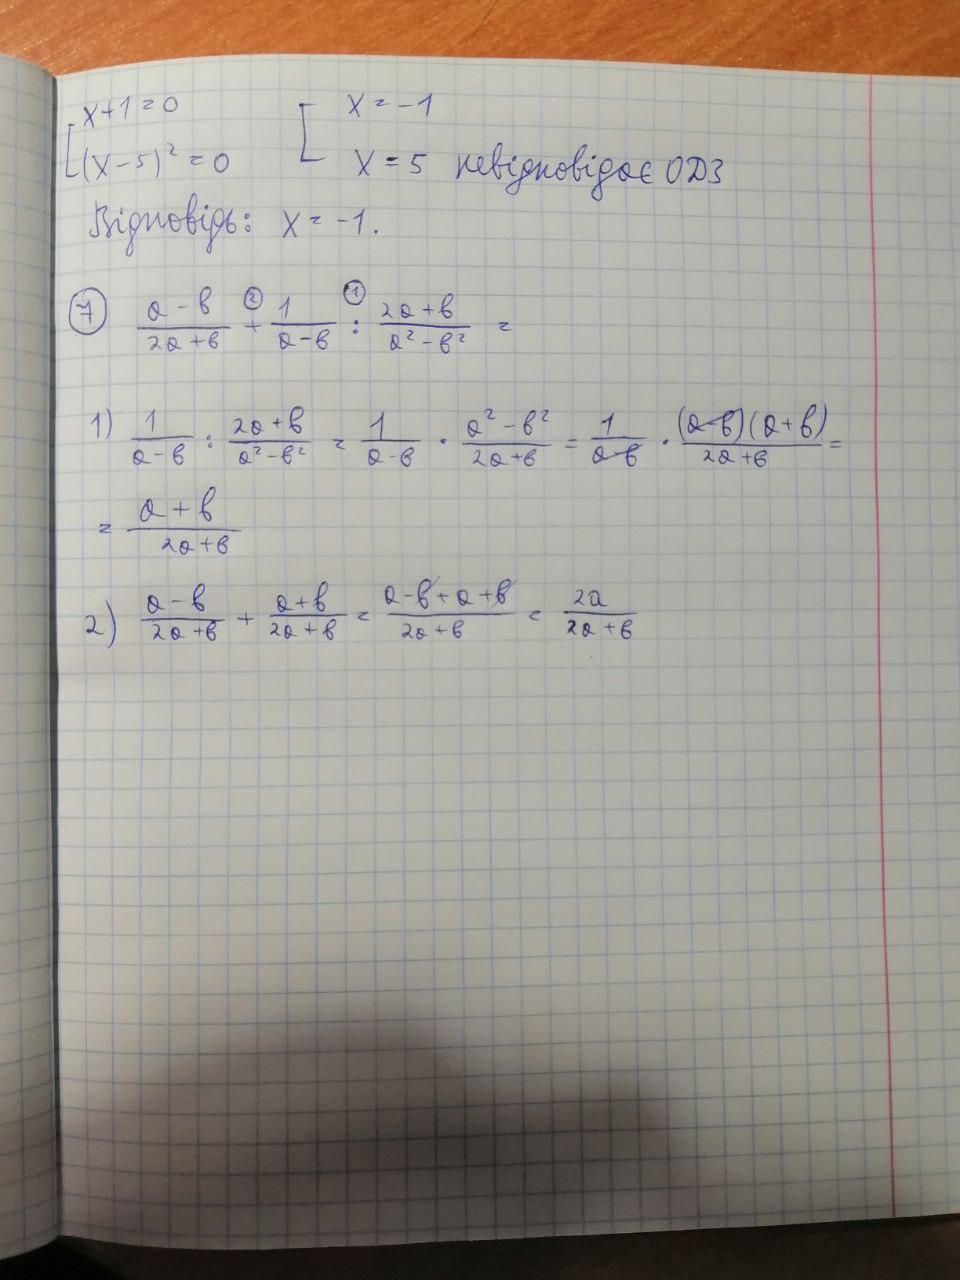 x+1=0 x=-1
(x-5)²=0 x=5 невідповідає ОДЗ
Відповідь: x=-1.
7 (a-b)/(2a+b) +② 1/(a-b) :① (2a+b)/(a²-b²) =
1) 1/(a-b) : (2a+b)/(a²-b²) = 1/(a-b) · (a²-b²)/(2a+b) = 1/(a-b) · (a-b)(a+b)/(2a+b) =
= (a+b)/(2a+b)
2) (a-b)/(2a+b) + (a+b)/(2a+b) = (a-b+a+b)/(2a+b) = 2a/(2a+b)